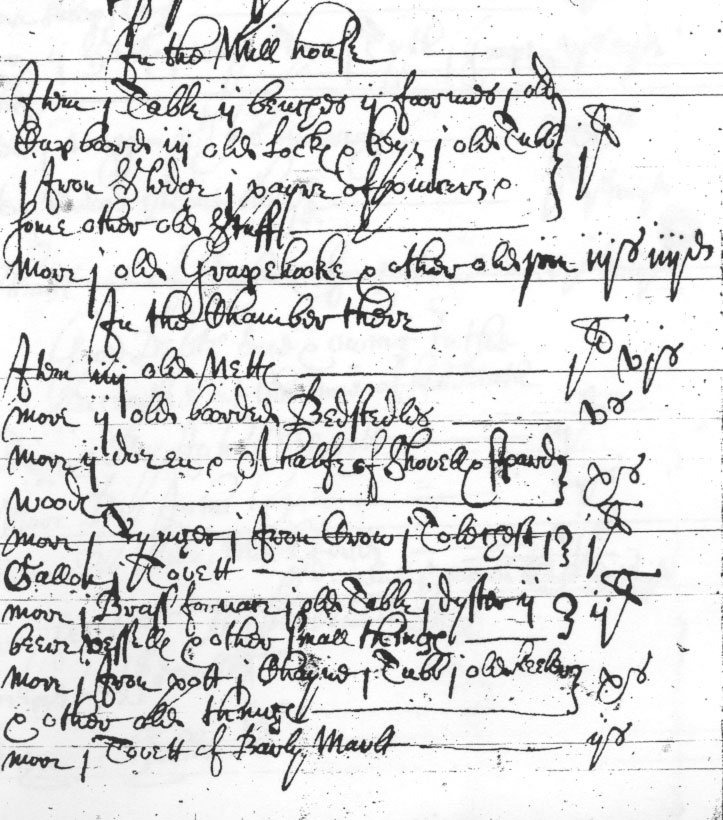 In the Mill house
Item j Table ij benches ij formes j old
Cupboard iij old Locke & keyes j old Tubb
j Iron j payre of &
some other old Stuff
More j old Grapehooke & other old iron iijs iiijd
In the Chamber there
Item iiij old Nette vjs
more ij old boarded Bedstedles vs
more ij dozen & A halfe of Shovell & spade xs
woode
more j j Iron Crow j j
Gallon j Tovett
more j Brass fornace j old Table j ij
beere vesselle & other small thinge
more j Iron pott j Chayne j Tubb j old keeler xs
& other old thinge
more j Tovett of Barly Mault ijs